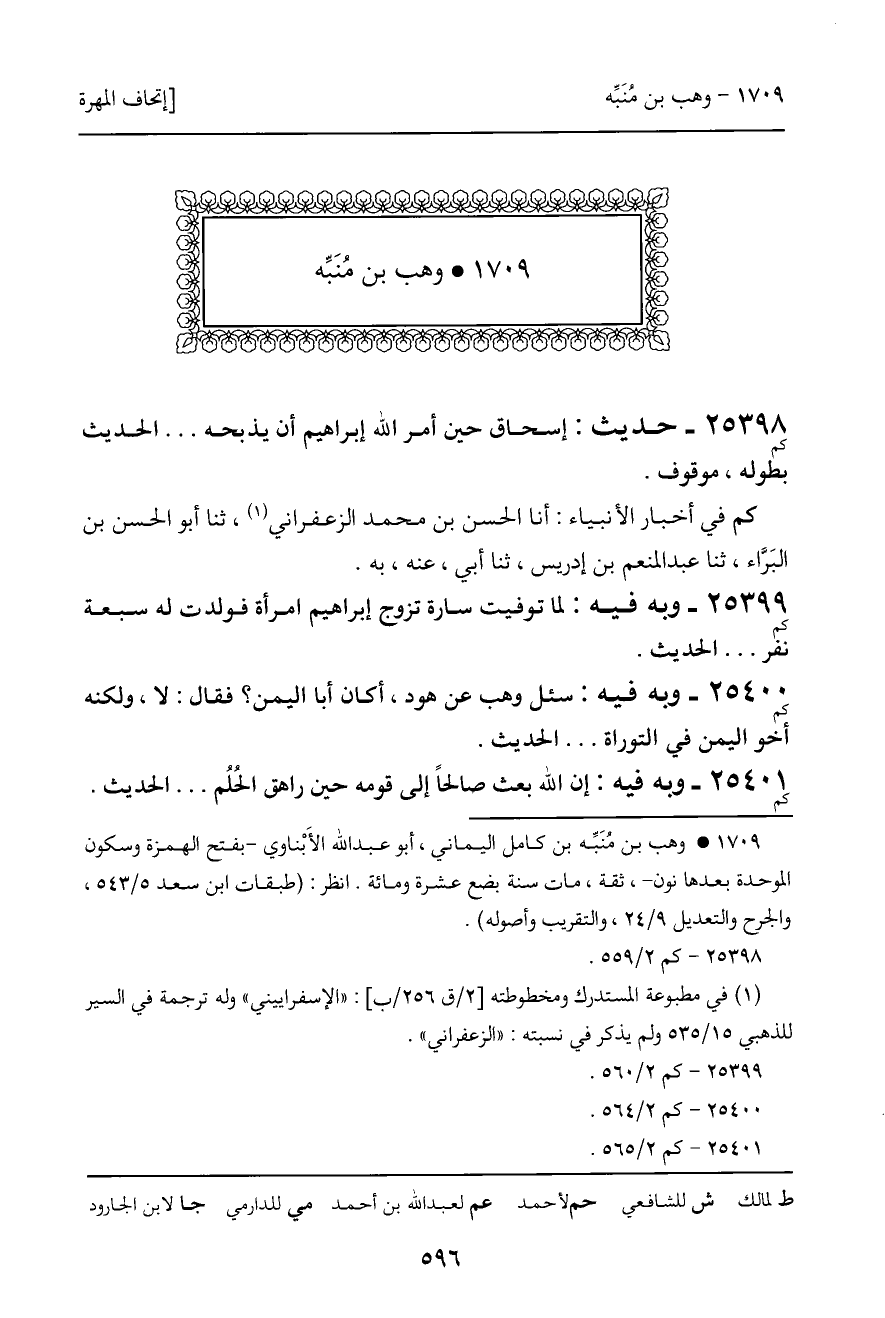 ١٧٠٩ - وهب بن مُنَبِّه
[إتحاف المهرة
١٧٠٩ ● وهب بن مُنَبِّه
٢٥٣٩٨ ـ حـديث : إسـحـاق حين أمـر الله إبـراهيم أن يـذبحـه ... الحـديث
كم
بطوله ، موقوف .
كم في أخبـار الأنبـياء : أنـا الحسن بن محمـد الزعـفـراني(١) ، ثنا أبو الحسن بن
البَرَّاء ، ثنا عبدالمنعم بن إدريس ، ثنا أبي ، عنه ، به .
٢٥٣٩٩ ـ وبه فـيـه : لما توفيت سارة تزوج إبراهيم امرأة فـولدت له سـبـعـة
كم
نفر ... الحديث .
٢٥٤٠٠ ـ وبه فـيه : سئـل وهب عن هود ، أكـان أبـا اليمـن؟ فقـال : لا ، ولكنه
كم
أخو اليمن في التوراة ... الحديث .
٢٥٤٠١ ـ وبه فيه : إن الله بعث صالحاً إلى قومه حين راهق الحُلُم ... الحديث .
كم
١٧٠٩ ● وهب بـن مُنَبِّـه بن كـامل اليـماني ، أبو عـبدالله الأَبْناوي -بفـتح الهـمزة وسكون
الموحدة بـعـدها نون- ، ثقـة ، مـات سنـة بضع عـشـرة ومـائة . انظر : (طبـقـات ابن سعد ٥٤٣/٥ ،
والجرح والتعديل ٢٤/٩ ، والتقريب وأصوله) .
٢٥٣٩٨ - كم ٥٥٩/٢ .
(١) في مطبوعة المستدرك ومخطوطته [٢/ق ٢٥٦/ب] : «الإسفراييني» وله ترجمة في السير
للذهبي ٥٣٥/١٥ ولم يذكر في نسبته : «الزعفراني» .
٢٥٣٩٩ - كم ٥٦٠/٢ .
٢٥٤٠٠ - كم ٥٦٤/٢ .
٢٥٤٠١ - كم ٥٦٥/٢ .
ط لمالك ش للشـافعي حم لأحمـد عم لعبـدالله بن أحمـد مي للدارمي جـا لابن الجـارود
٥٩٦